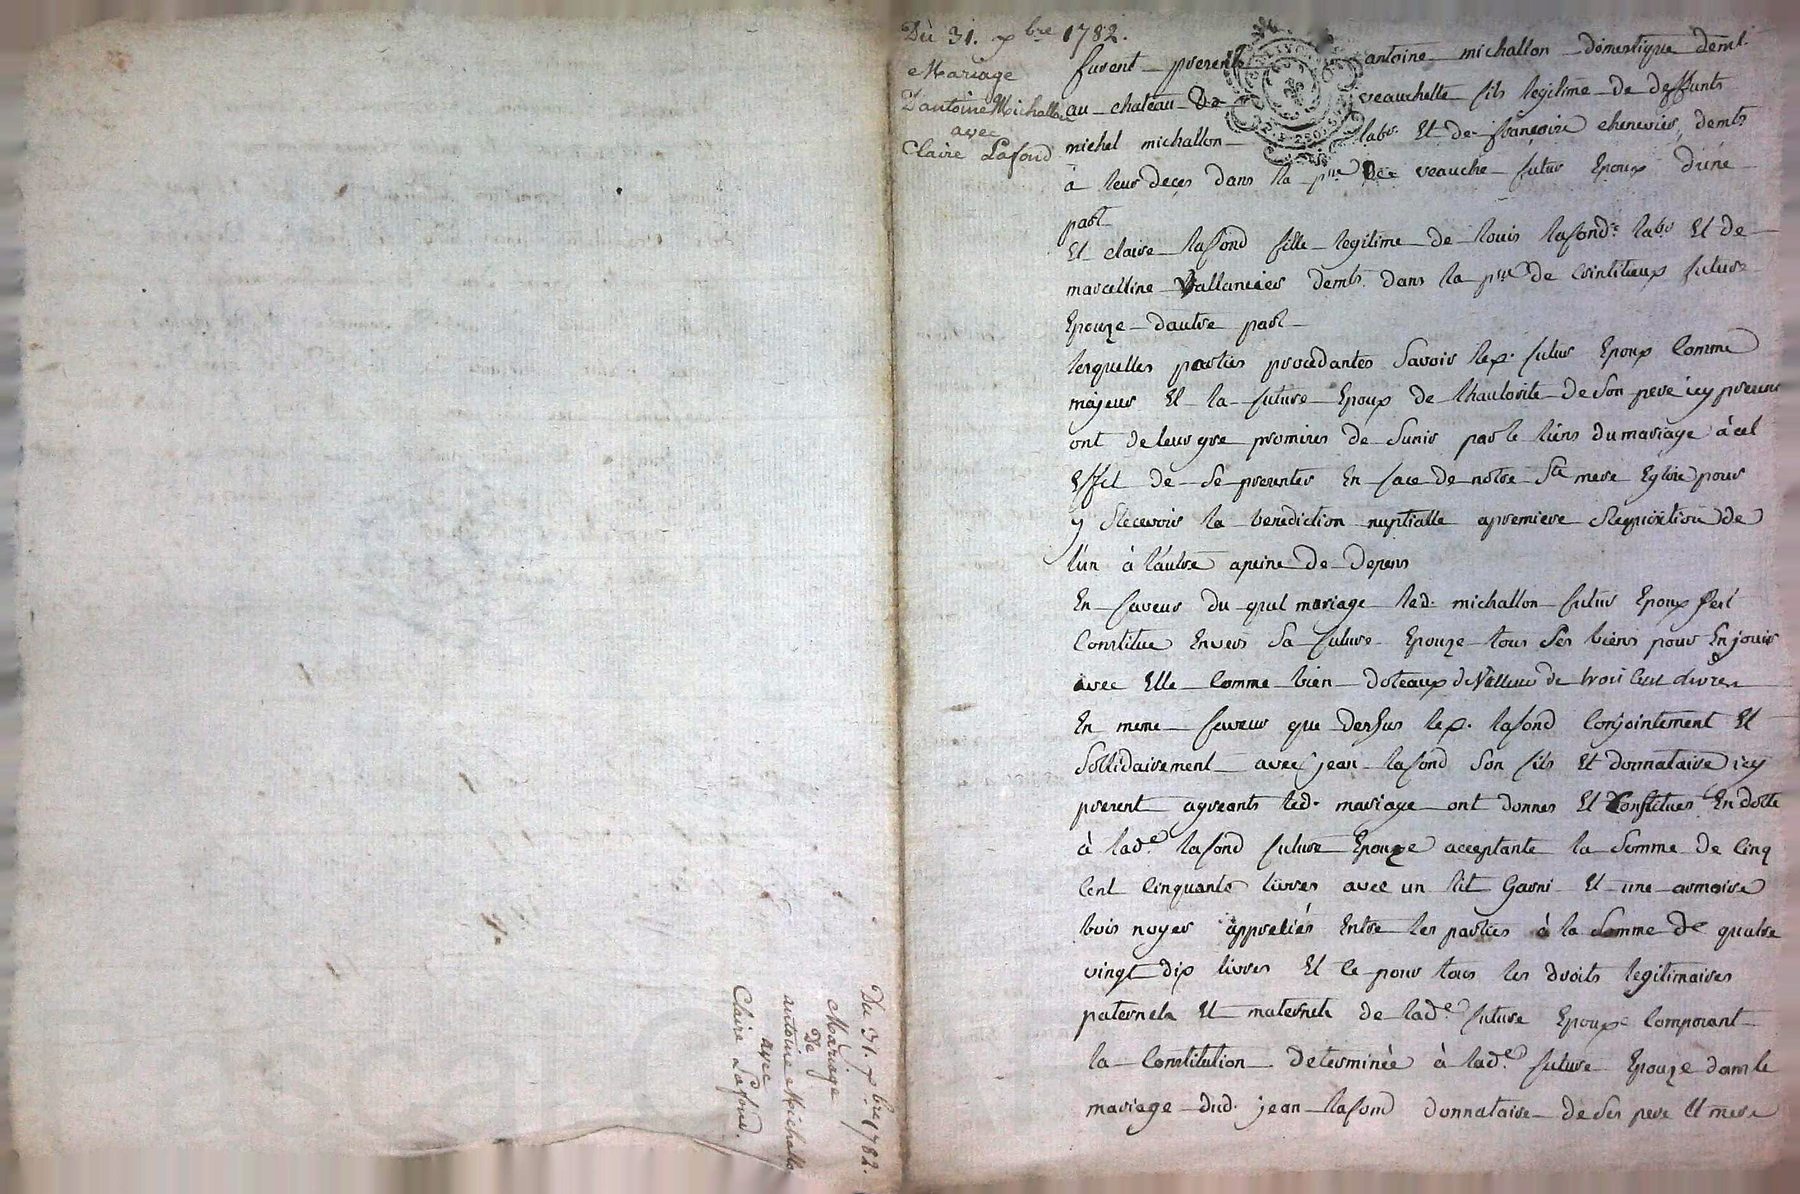 Du 31. xbre 1782.
Mariage
D'antoine Michallon
avec
Claire Lafond
furent presents antoine michallon domestique demt.
au chateau de veauchette fils legitime de deffunts
michel michallon labr. Et de françoise chenevier, demts
à leur deces dans la psse De veauche futur Epoux d'une
part
Et claire lafond fille legitime de louis lafond labr Et de
marcelline Vallancier demts. dans la psse de Cuintieux future
Epouze d'autre part
lesquelles parties procedantes Savoir le p. futur Epoux Comme
majeur Et la future Epoux de lhautorite de Son pere icy present
ont de leur gre promires de Sunir par le liens du mariage à cet
Effet de Se presenter En face de notre Ste mere Eglise pour
y Recevoir la benediction nuptialle apremiere Requisition de
l'un à l'autre apeine de depens
En faveur du quel mariage led. michallon futur Epoux Sest
Constitue Envers Sa future Epouze tous Ses biens pour En jouir
avec Elle Comme bien doteaux de Valleur de trois Cent livres
En meme faveur que dessus le p. lafond Conjointement Et
Sollidairement avec jean lafond Son fils Et donnataire icy
present agreants led. mariage ont donnes Et Constitues En dotte
à lade. lafond future Epouze acceptante la Somme de Cinq
Cent Cinquante livres avec un lit Garni Et une armoire
bois noyer appretiés Entre les parties à la Somme de quatre
vingt dix livres Et Ce pour tous les droits legitimaires
paternels Et maternels de lade. future Epoux Composant
la Constitution determinée à lade. future Epouze dans le
mariage dud. jean lafond donnataire de Ses pere Et mere
Du 31. xbre 1782.
Mariage
De
antoine Michallo
avec
Claire Lafond.